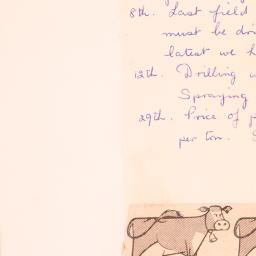 8th. Last field
must be dri
latest we h
12th. Drilling w
Spraying
29th. Price of p
per ton. S